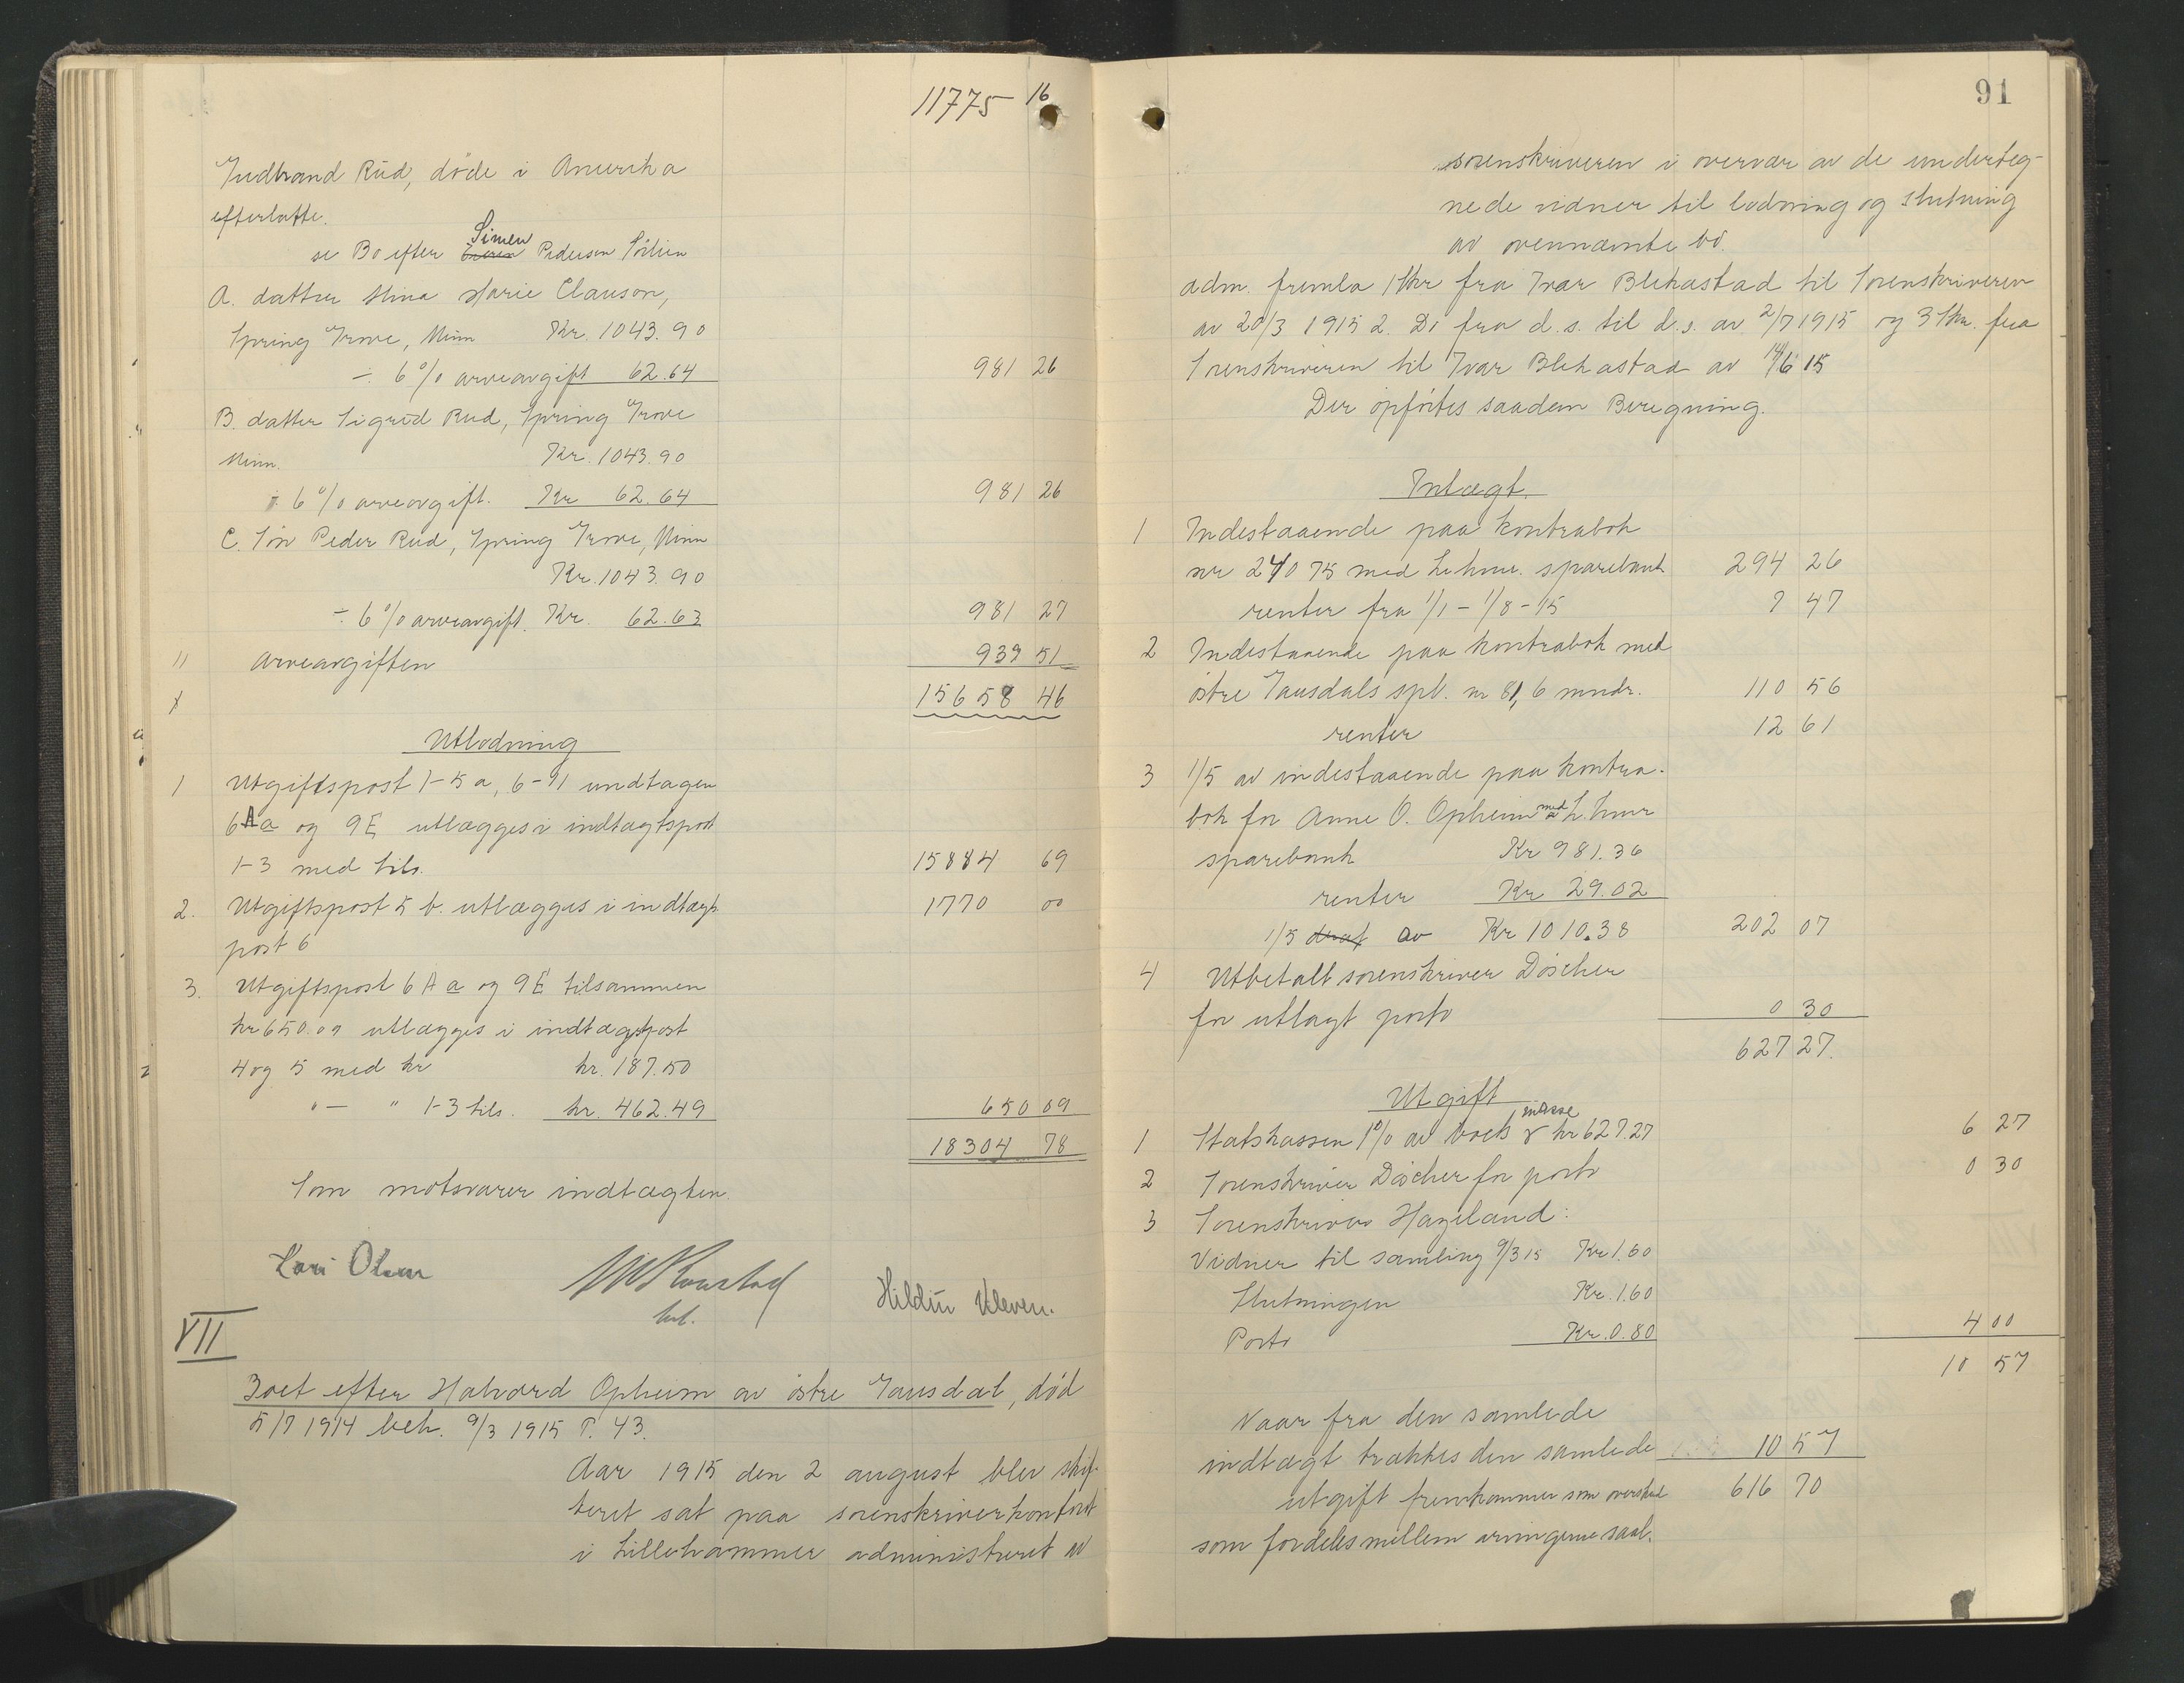 11775 16
Gudbrand Rud, døde i Amerika
efterlatte.
se Bo efter Simen Pedersen Sølien
A. datter Mina Marie Clauson,
Spring Grove, Minn Kr. 1043.90
÷ 6 % arveavgift 62.64 981 26
B. datter Sigrid Rud, Spring Grove
Minn. Kr. 1043.90
÷ 6 % arveavgift. Kr 62.64 981 26
C. Søn Peder Rud, Spring Grove, Minn
Kr. 1043.90
÷ 6 % arveavgift. Kr. 62.63 981 27
11 Arveavgiften 939 51
15658 46
Utlodning
1 Utgiftspost 1-5 a, 6-11 undtagen
6 A a og 9 E utlægges i indtægtspost
1-3 med tils. 15884 69
2. Utgiftspost 5 b. utlægges i indtægts
post 6 1770 00
3. Utgiftspost 6 A a og 9 E tilsammen
kr 650.09 utlægges i indtægtspost
4 og 5 med kr kr. 187.50
" — " 1-3 tils. kr. 462.49 650 09
18304 78
Som motsvarer indtægten.
Kari Olsen
Hildur Kleven.
VII
Boet efter Halvord Opheim av østre Gausdal, død
5/7 1914 beh. 9/3 1915 P. 43.
Aar 1915 den 2 august blev skif-
teret sat paa sorenskriverkontoret
i Lillehammer administreret av
91
sorenskriveren i overvær av de underteg-
nede vidner til lodning og slutning
av ovennævnte bo.
adm. fremla 1 Skr fra Ivar Blekastad til Sorenskriveren
av 20/3 1915 2. Do fra d.s. til d.s. av 2/7 1915 og 3 Skr. fra
Sorenskriveren til Ivar Blekastad av 14/6 15
Der opførtes saadan Beregning.
Intægt.
1 Indestaaende paa kontrabok
nr 24075 med Lhmr. sparebank 294 26
renter fra 1/1 - 1/8 - 15 7 47
2 Indestaaende paa kontrabok med
østre Gausdals spb. nr 81, 6 mndr. 110 56
renter 12 61
3 1/5 av indestaaende paa kontra-
bok for Anne O. Opheim med L.hmr
sparebank Kr 981.36
renter Kr 29.02
1/5 av Kr 1010.38 202 07
4 Utbetalt sorenskriver Döscher
for utlagt porto 0 30
627 27.
Utgift
1 Statskassen 1 % av boets masse kr 627.27 6 27
2 Sorenskriver Döscher for porto 0 30
3 Sorenskriver Hazeland:
Vidner til samling 9/3 15 Kr 1.60
Slutningen Kr. 1.60
Porto Kr. 0.80 4 00
10 57
Naar fra den samlede
indtægt trækkes den samlede 10 57
utgift fremkommer som overskud 616 70
som fordeles mellem arvingerne saal.